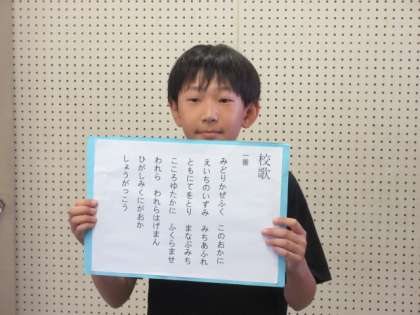 校歌
一番
みどりかぜふく　このおかに
えいちのいずみ　みちあふれ
ともにてをとり　まなぶみち
こころゆたかに　ふくらませ
われら　われらはげまん
ひがしみくにがおか
しょうがっこう